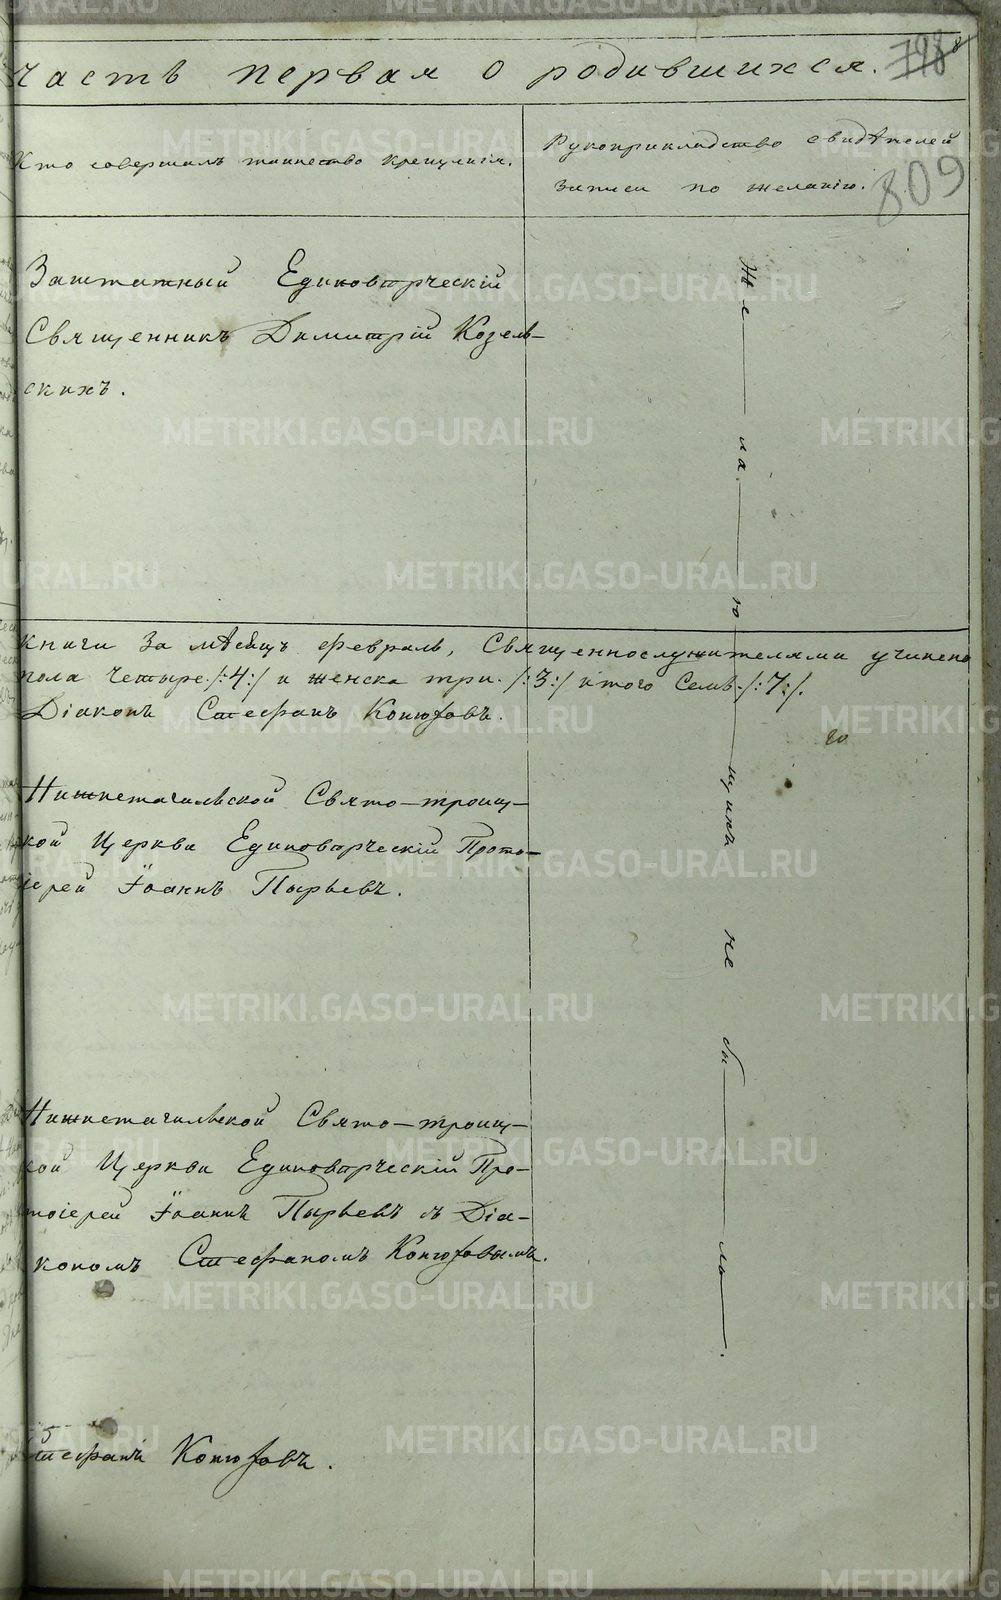 часть первая о родившихся.
798
Кто совершалъ таинство крещенія.
Рукоприкладство свидѣтелей
записи по желанію.
809
Заштатный Единовѣрческій
Священникъ Димитрій Козель-
скихъ.
книги за мѣсяцъ февраль, Священнослужителями учинено
пола четыре /:4:/ и женска три /:3:/ итого семь /:7:/.
Діаконъ Стефанъ Конюховъ.
Нижнетагильской Свято-троиц-
кой Церкви Единовѣрческій Прото-
іерей Іоаннъ Пырьевъ.
Нижнетагильской Свято-троиц-
кой Церкви Единовѣрческій Про-
тоіерей Іоаннъ Пырьевъ съ Діа-
кономъ Стефаномъ Конюховымъ.
Стефанъ Конюховъ.
Же — ла — ю — щихъ не бы — ло.
METRIKI.GASO-URAL.RU